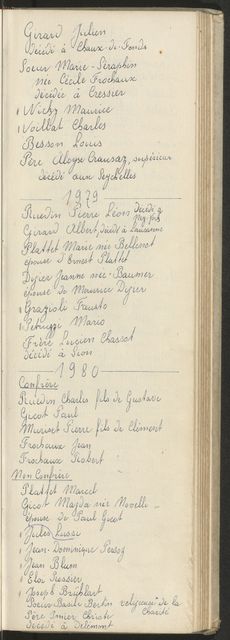 Girard Julien
décédé à Chaux-de-Fonds
Soeur Marie-Séraphin
née Cécile Frochaux
décédée à Cressier
Wicky Maurice
Voillat Charles
Besson Louis
Père Aloyse Crausaz, supérieur
décédé aux Seychelles
1979
Ruedin Pierre Léon décédé à
Girard Albert, décédé à Lausanne
Plattet Marie née Bellenot
épouse d'Ernest Plattet
Digier Jeanne née Baumer
épouse de Maurice Digier
Grazioli Fausto
Petruzzi Mario
Frère Lucien Chassot
décédé à Sion
1980
Confrère
Ruedin Charles fils de Gustave
Gicot Paul
Muriset Pierre fils de Clément
Frochaux Jean
Frochaux Robert
Non Confrère
Plattet Marcel
Gicot Magda née
épouse de Paul Gicot
Jules
Jean-Dominique Persoz
Jean Blum
Joseph Brühlart
Soeur Basile Bertin religieuse de la
Charité
Père
décédé à Delémont